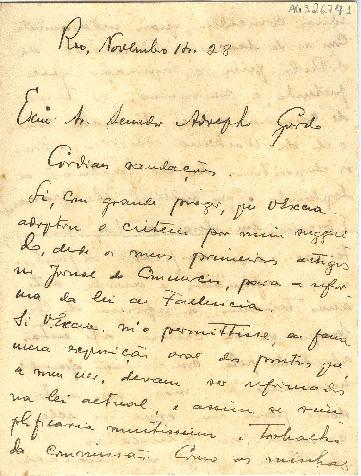 AG326741
Rio, Novembro 14. 28
Exmo Sr. Senador Adolpho Gordo
Cordiaes saudações.
Li, com grande prazer, que V. Excia
adoptou o criterio por mim suggeri
do, desde os meus primeiros artigos
no Jornal do Commercio, para a refor
ma da lei de Fallencia.
Si V. Excia. m'o permittisse, eu faria
uma exposição oral dos pontos que,
a meu ver, devem ser reformados
na lei actual, e assim se sim
plificaria muitissimo o trabalho
da commissão. Como os minhas